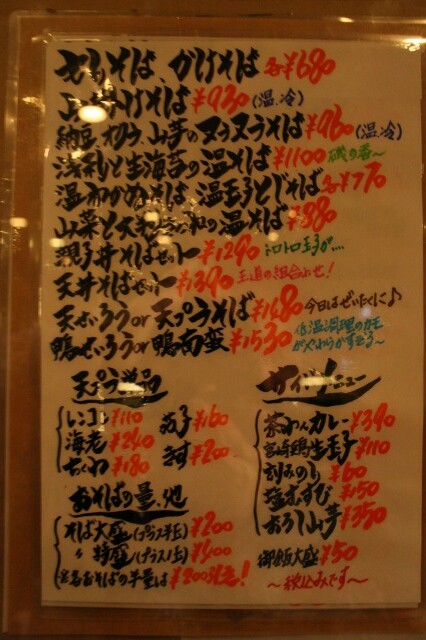 せいろそば、かけそば 各¥680
山かけそば ¥930 (温、冷)
納豆、オクラ、山芋のヌラヌラそば ¥960 (温、冷)
浅利と生海苔の温そば ¥1100 磯の香〜
温わかめそば、温玉子とじそば 各¥770
山菜と大和の温そば ¥880
親子丼そばセット ¥1290 トロトロ玉子が…
天丼そばセット ¥1390 王道の組合わせ!
天せいろう or 天プラそば ¥1480 今日はぜいたくに♪
鴨せいろう or 鴨南蛮 ¥1530 低温調理のカモがやわらかすぎる〜
天プラ単品
レンコン ¥110
茄子 ¥160
海老 ¥240
¥200
ちくわ ¥180
おそばの量、他
そば大盛(プラス半玉) ¥200
〃 特盛(プラス1玉) ¥400
おそばの半量は ¥200引き!
サイドメニュー
茶わんカレー ¥390
宮崎鶏生玉子 ¥110
刻みのり ¥60
塩むすび ¥150
おろし山芋 ¥350
御飯大盛 ¥50
〜税込みです〜